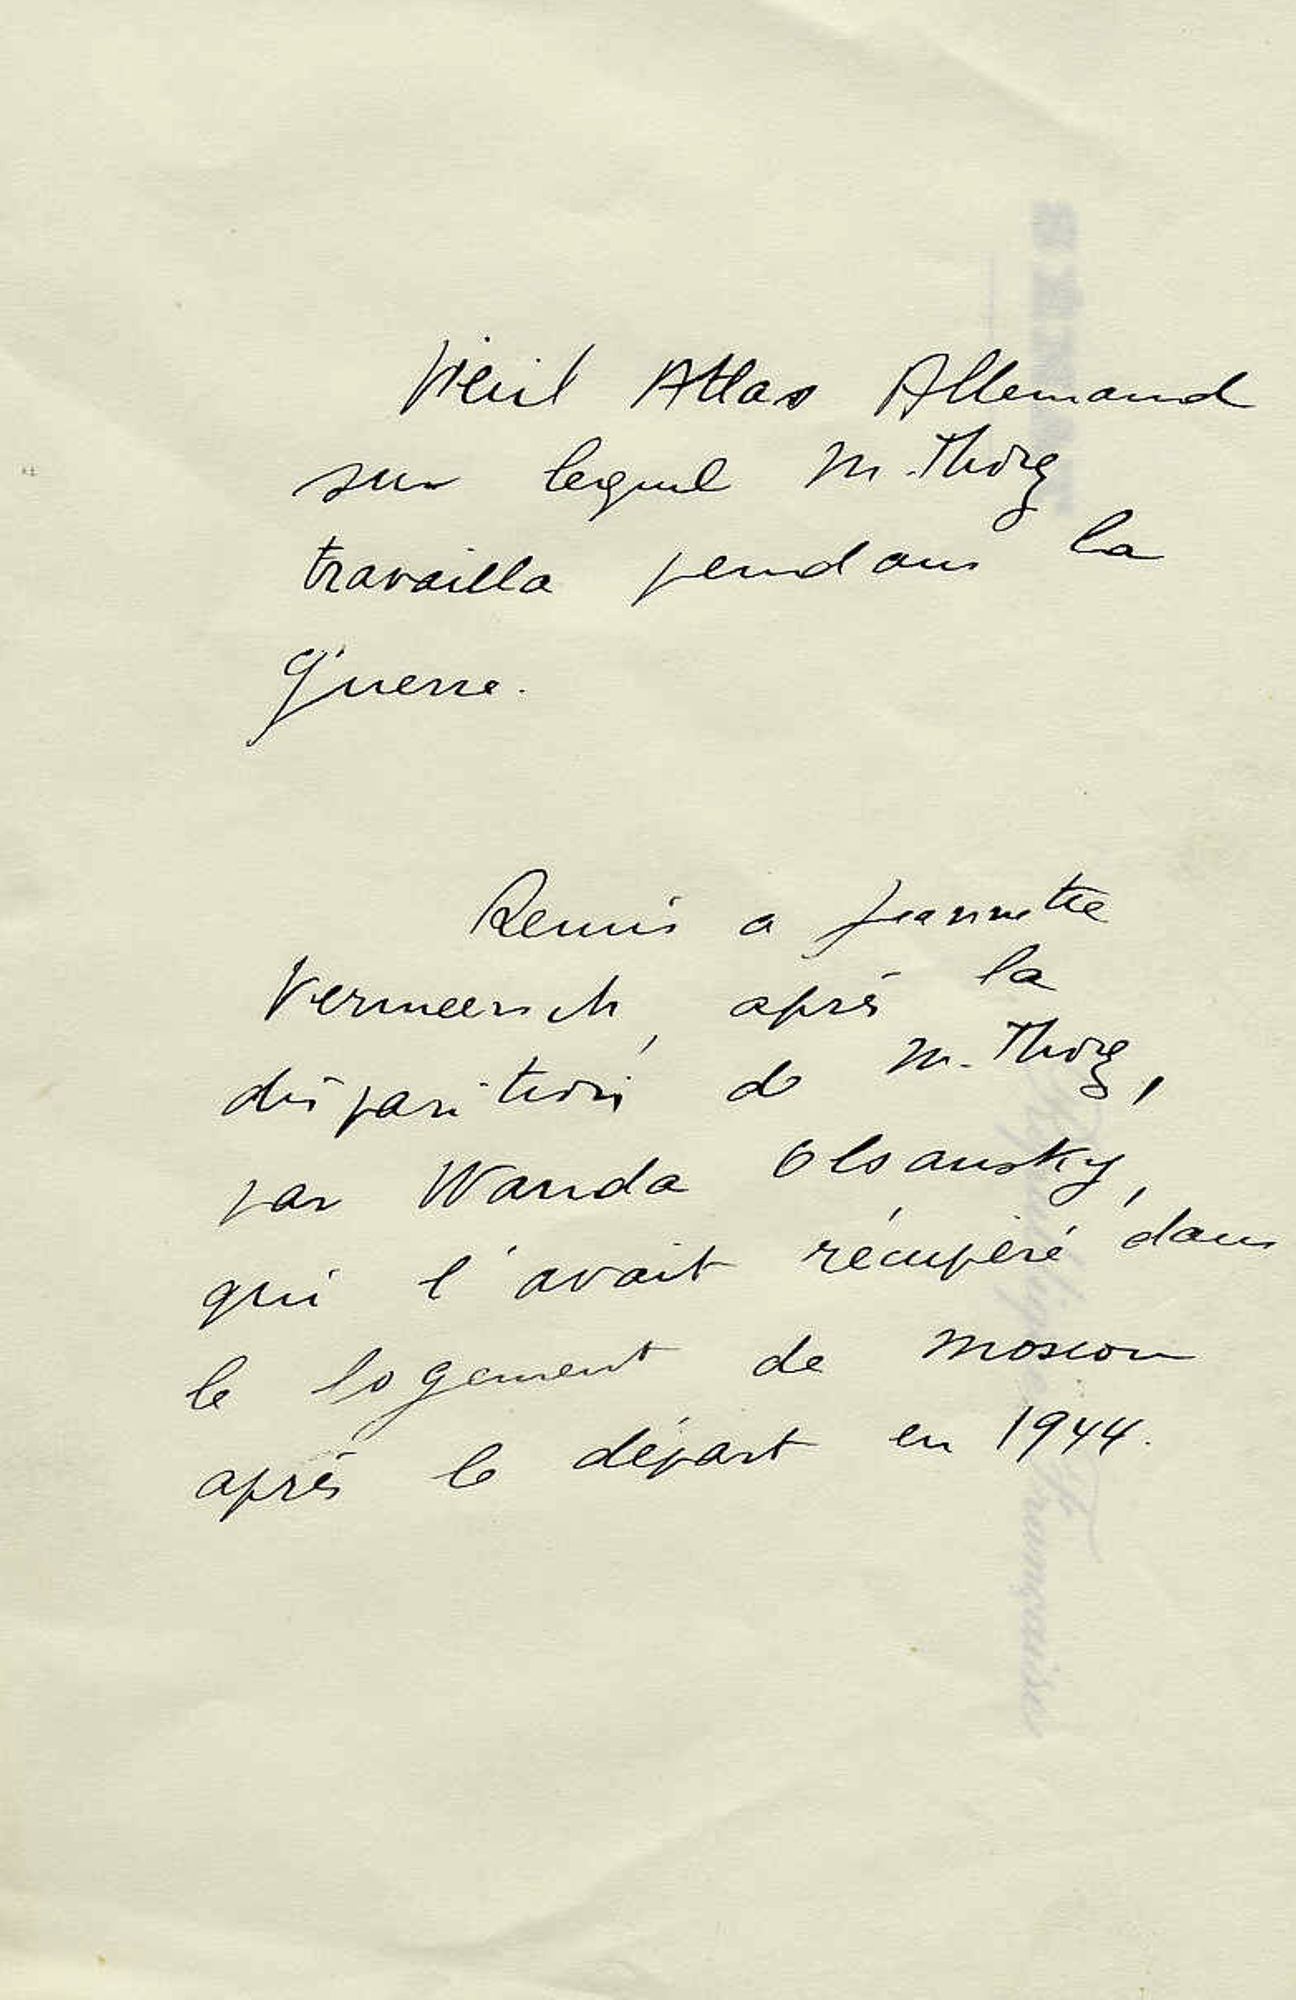 Vieil Atlas Allemand
sur lequel M. Thorez
travailla pendant la
Guerre.
Remis a Jeannette
Vermeersch, après la
disparition de M. Thorez,
par Wanda Olsansky,
qui l'avait récupéré dans
le logement de Moscou
après le départ en 1944.